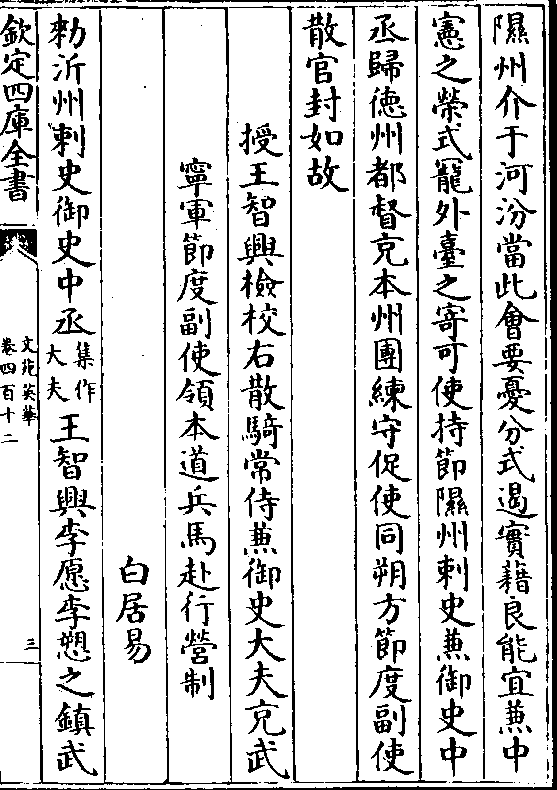 隰州介于河汾當此會要憂分式遏實藉良能宜兼中
憲之榮式寵外臺之寄可使持節隰州刺史兼御史中
丞歸徳州都督充本州團練守促使同朔方節度副使
散官封如故
授王智興檢校右散騎常侍兼御史大夫充武
寧軍節度副使領本道兵馬赴行營制
白居易
勑沂州刺史御史中丞集作大夫王智興李愿李愬之鎮武
欽定四庫全書
文苑英華
卷四百十二
三